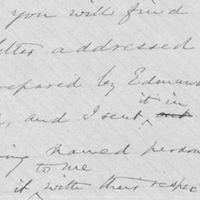 you will find
letter addressed
prepared by Edmun
, and I sent it in
ing named person
to me
it with their respec